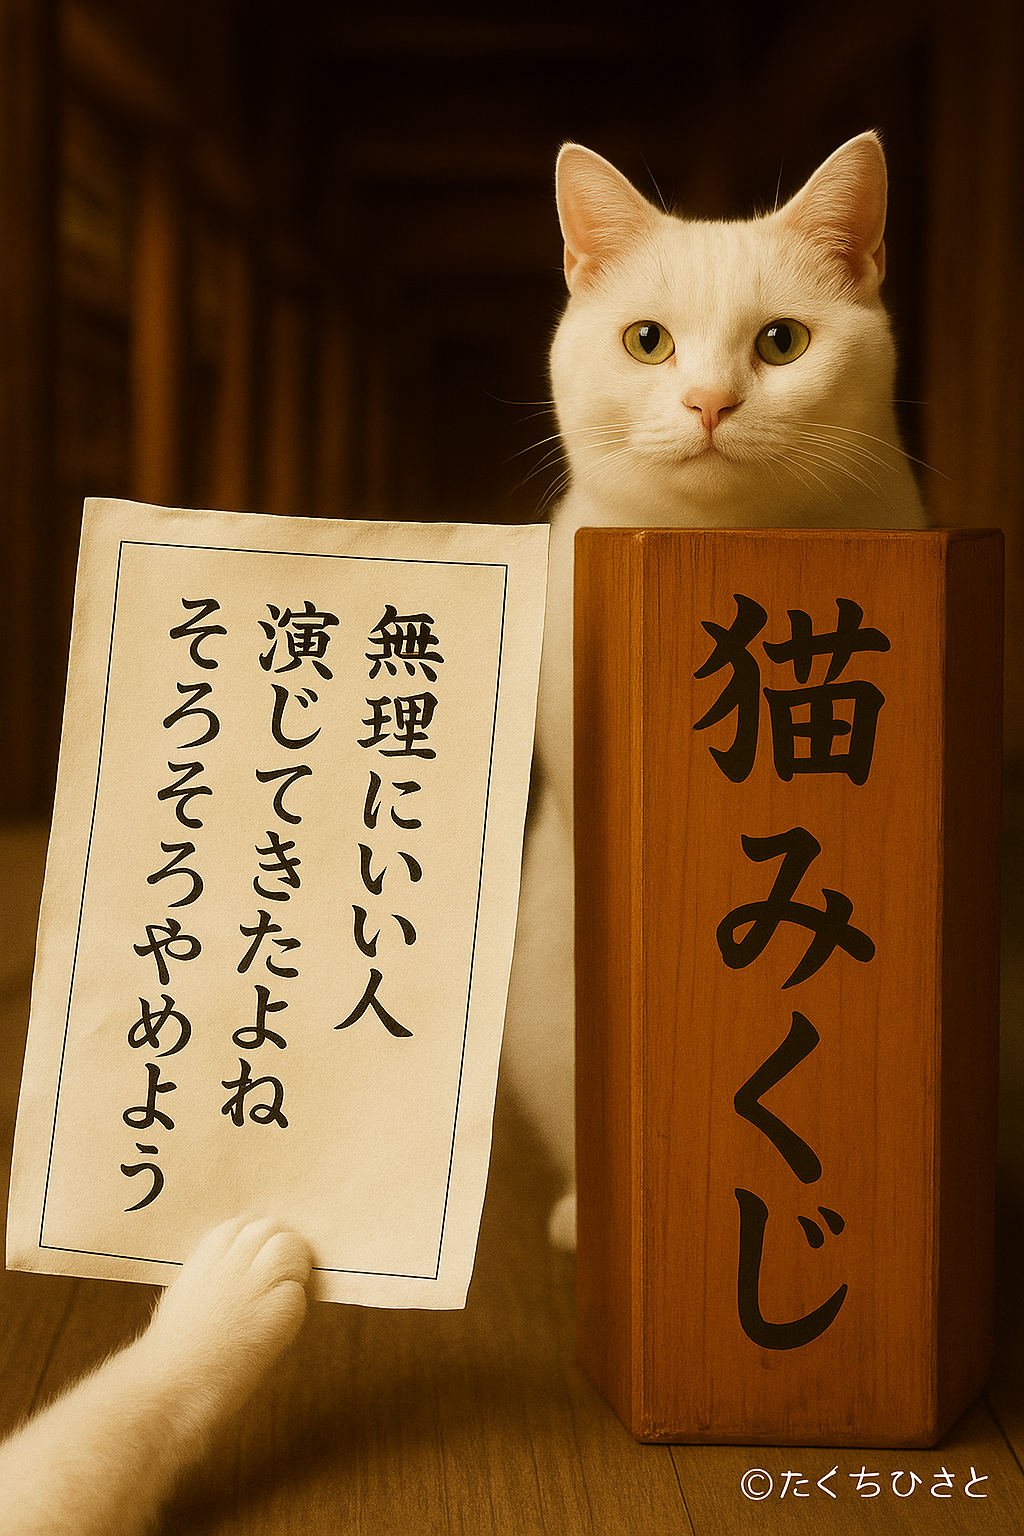 無理にいい人
演じてきたよね
そろそろやめよう
猫みくじ
©たくちひさと